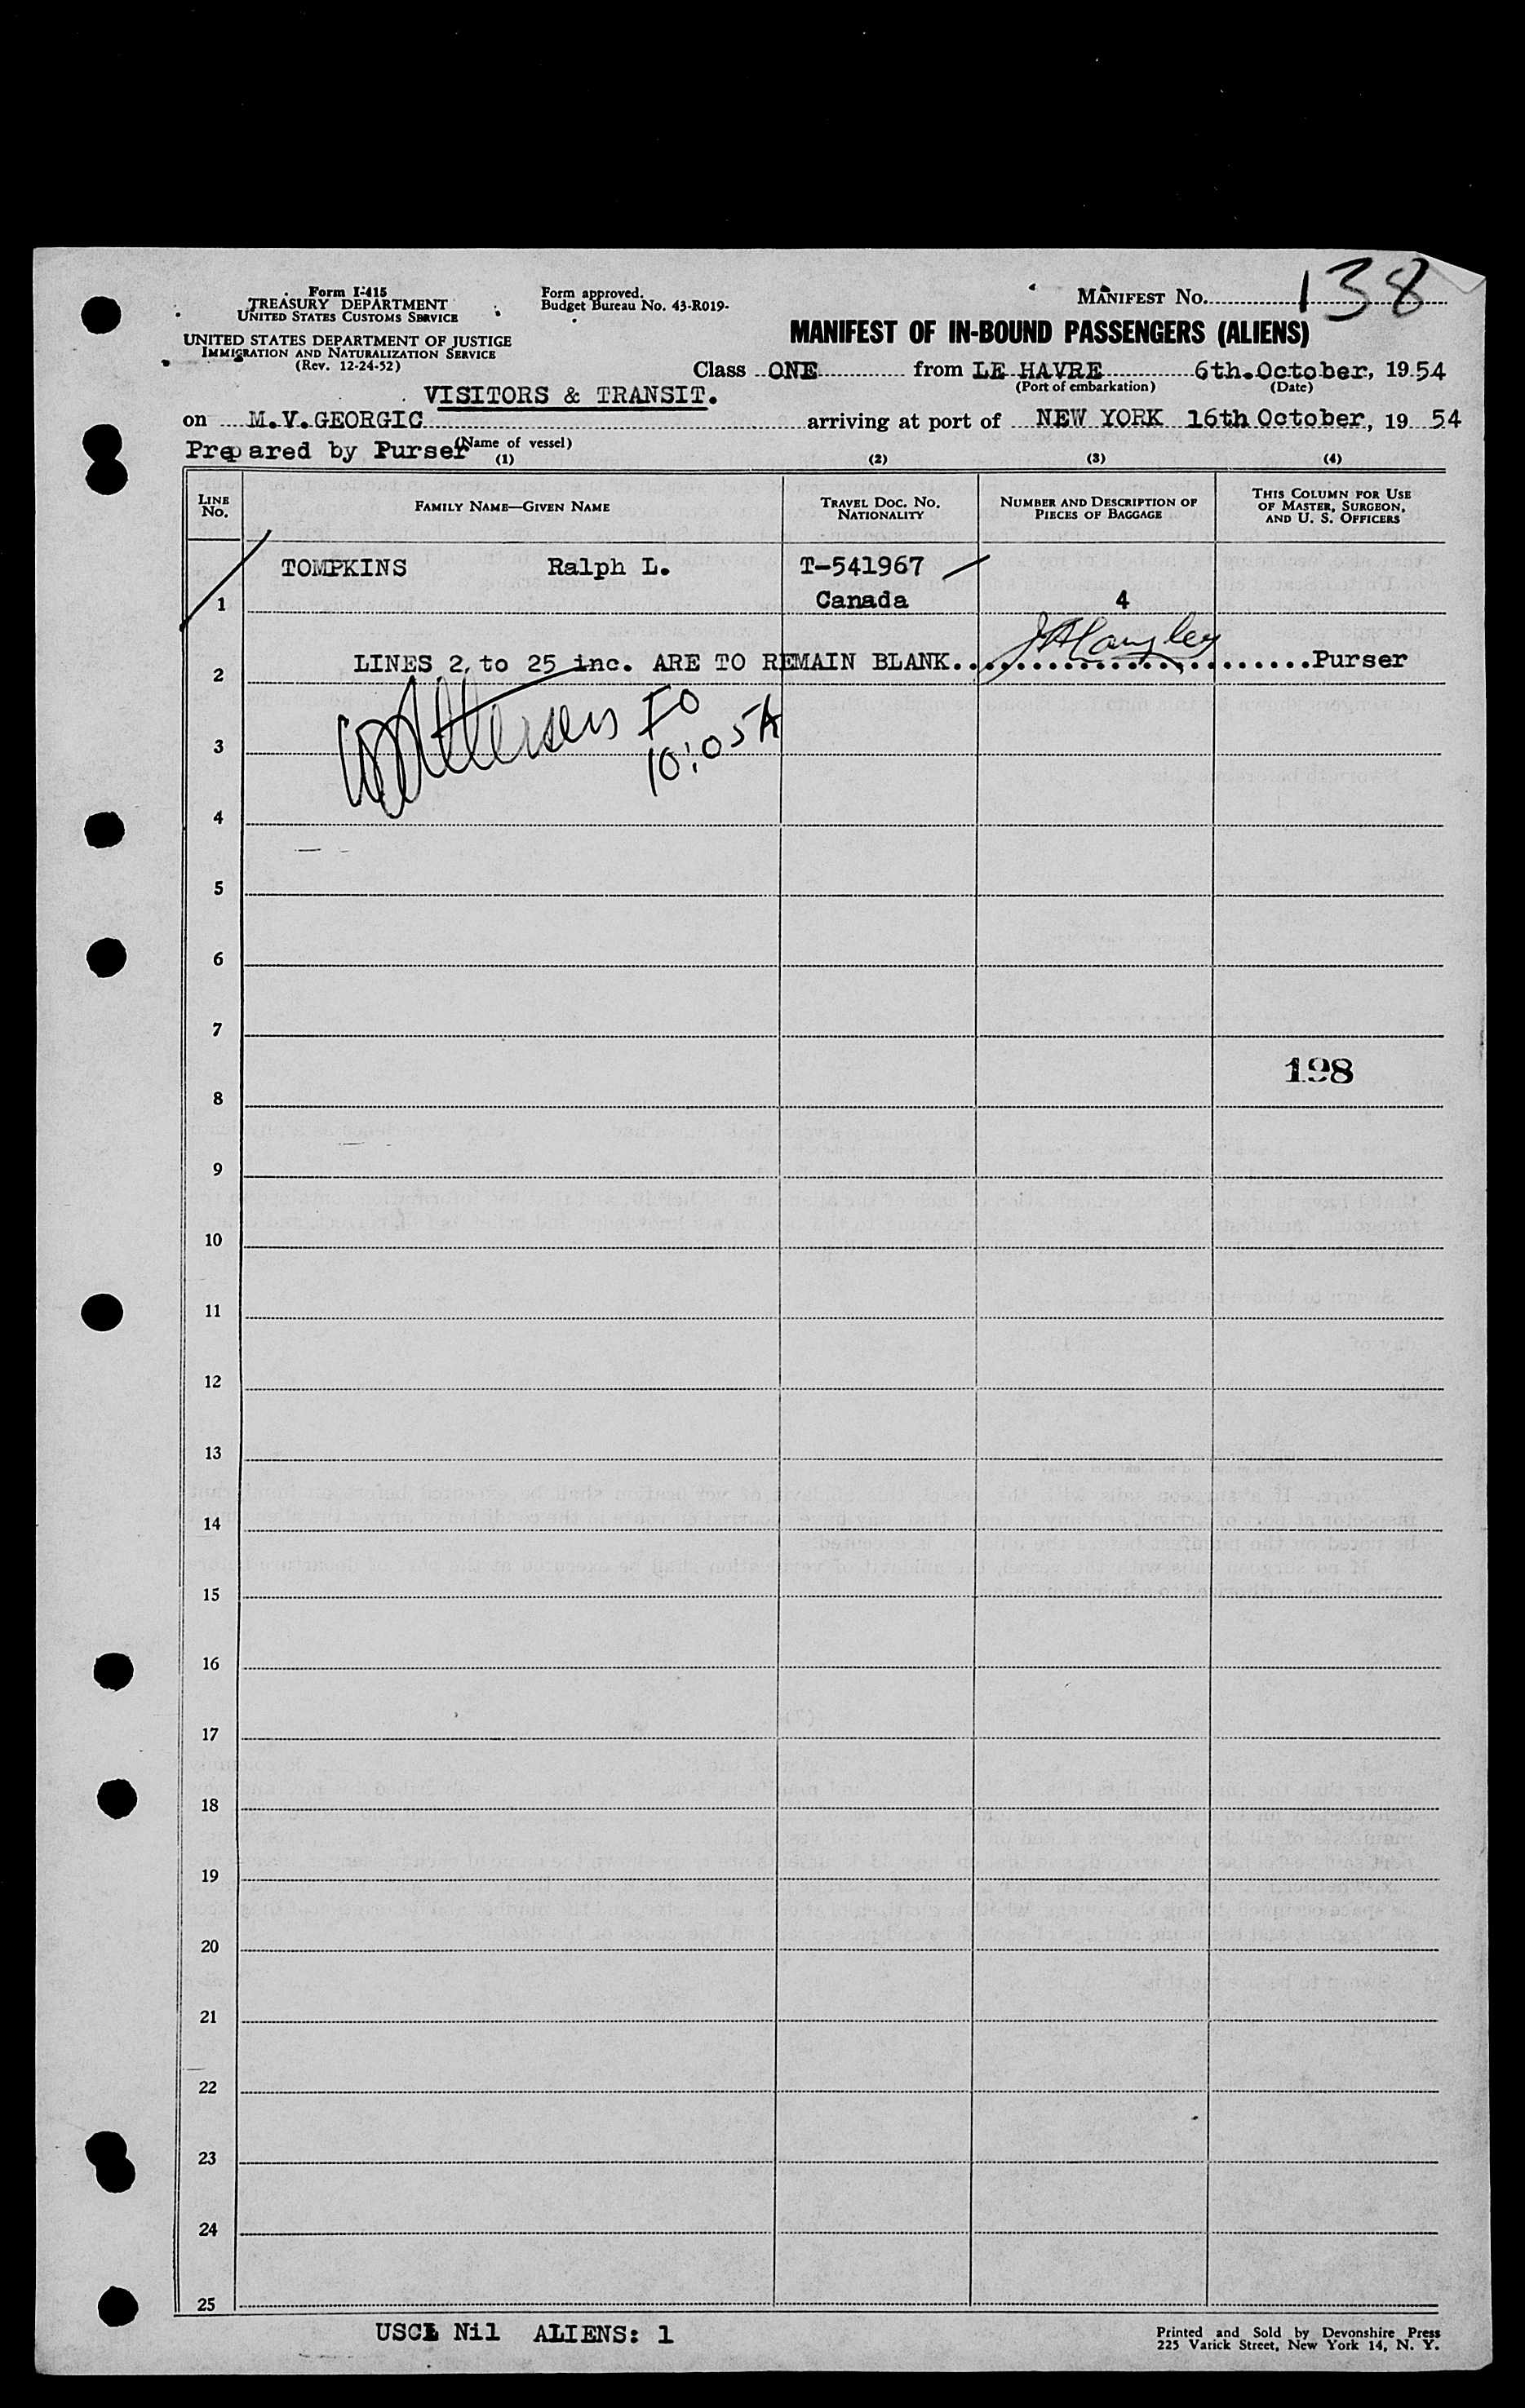 Form I-415
TREASURY DEPARTMENT
UNITED STATES CUSTOMS SERVICE
UNITED STATES DEPARTMENT OF JUSTICE
IMMIGRATION AND NATURALIZATION SERVICE
(Rev. 12-24-52)
Form approved.
Budget Bureau No. 43-R019-
MANIFEST No. 138
MANIFEST OF IN-BOUND PASSENGERS (ALIENS)
Class ONE from LE HAVRE 6th October, 1954
(Port of embarkation) (Date)
VISITORS & TRANSIT.
on M.V. GEORGIC arriving at port of NEW YORK 16th October, 19 54
Prepared by Purser (Name of vessel)
(1) (2) (3) (4)
LINE No. FAMILY NAME—GIVEN NAME TRAVEL DOC. No. NATIONALITY NUMBER AND DESCRIPTION OF PIECES OF BAGGAGE THIS COLUMN FOR USE OF MASTER, SURGEON, AND U. S. OFFICERS
TOMPKINS Ralph L. T-541967
1 Canada 4
LINES 2 to 25 inc. ARE TO REMAIN BLANK. Purser
2
IO
3 10:05A
4
5
6
7
198
8
9
10
11
12
13
14
15
16
17
18
19
20
21
22
23
24
25
USCL Nil ALIENS: 1
Printed and Sold by Devonshire Press
225 Varick Street, New York 14, N. Y.